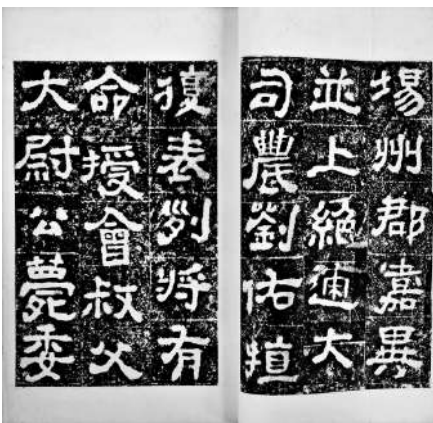 場州郡嘉異
並上絕大
司農劉佑
復表列將有
命授會叔父
大尉公薨委